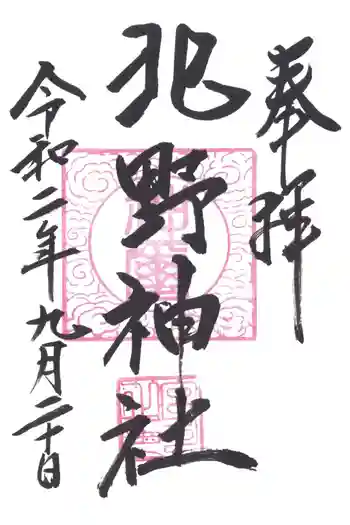 奉拝
北野神社
令和二年九月二十日